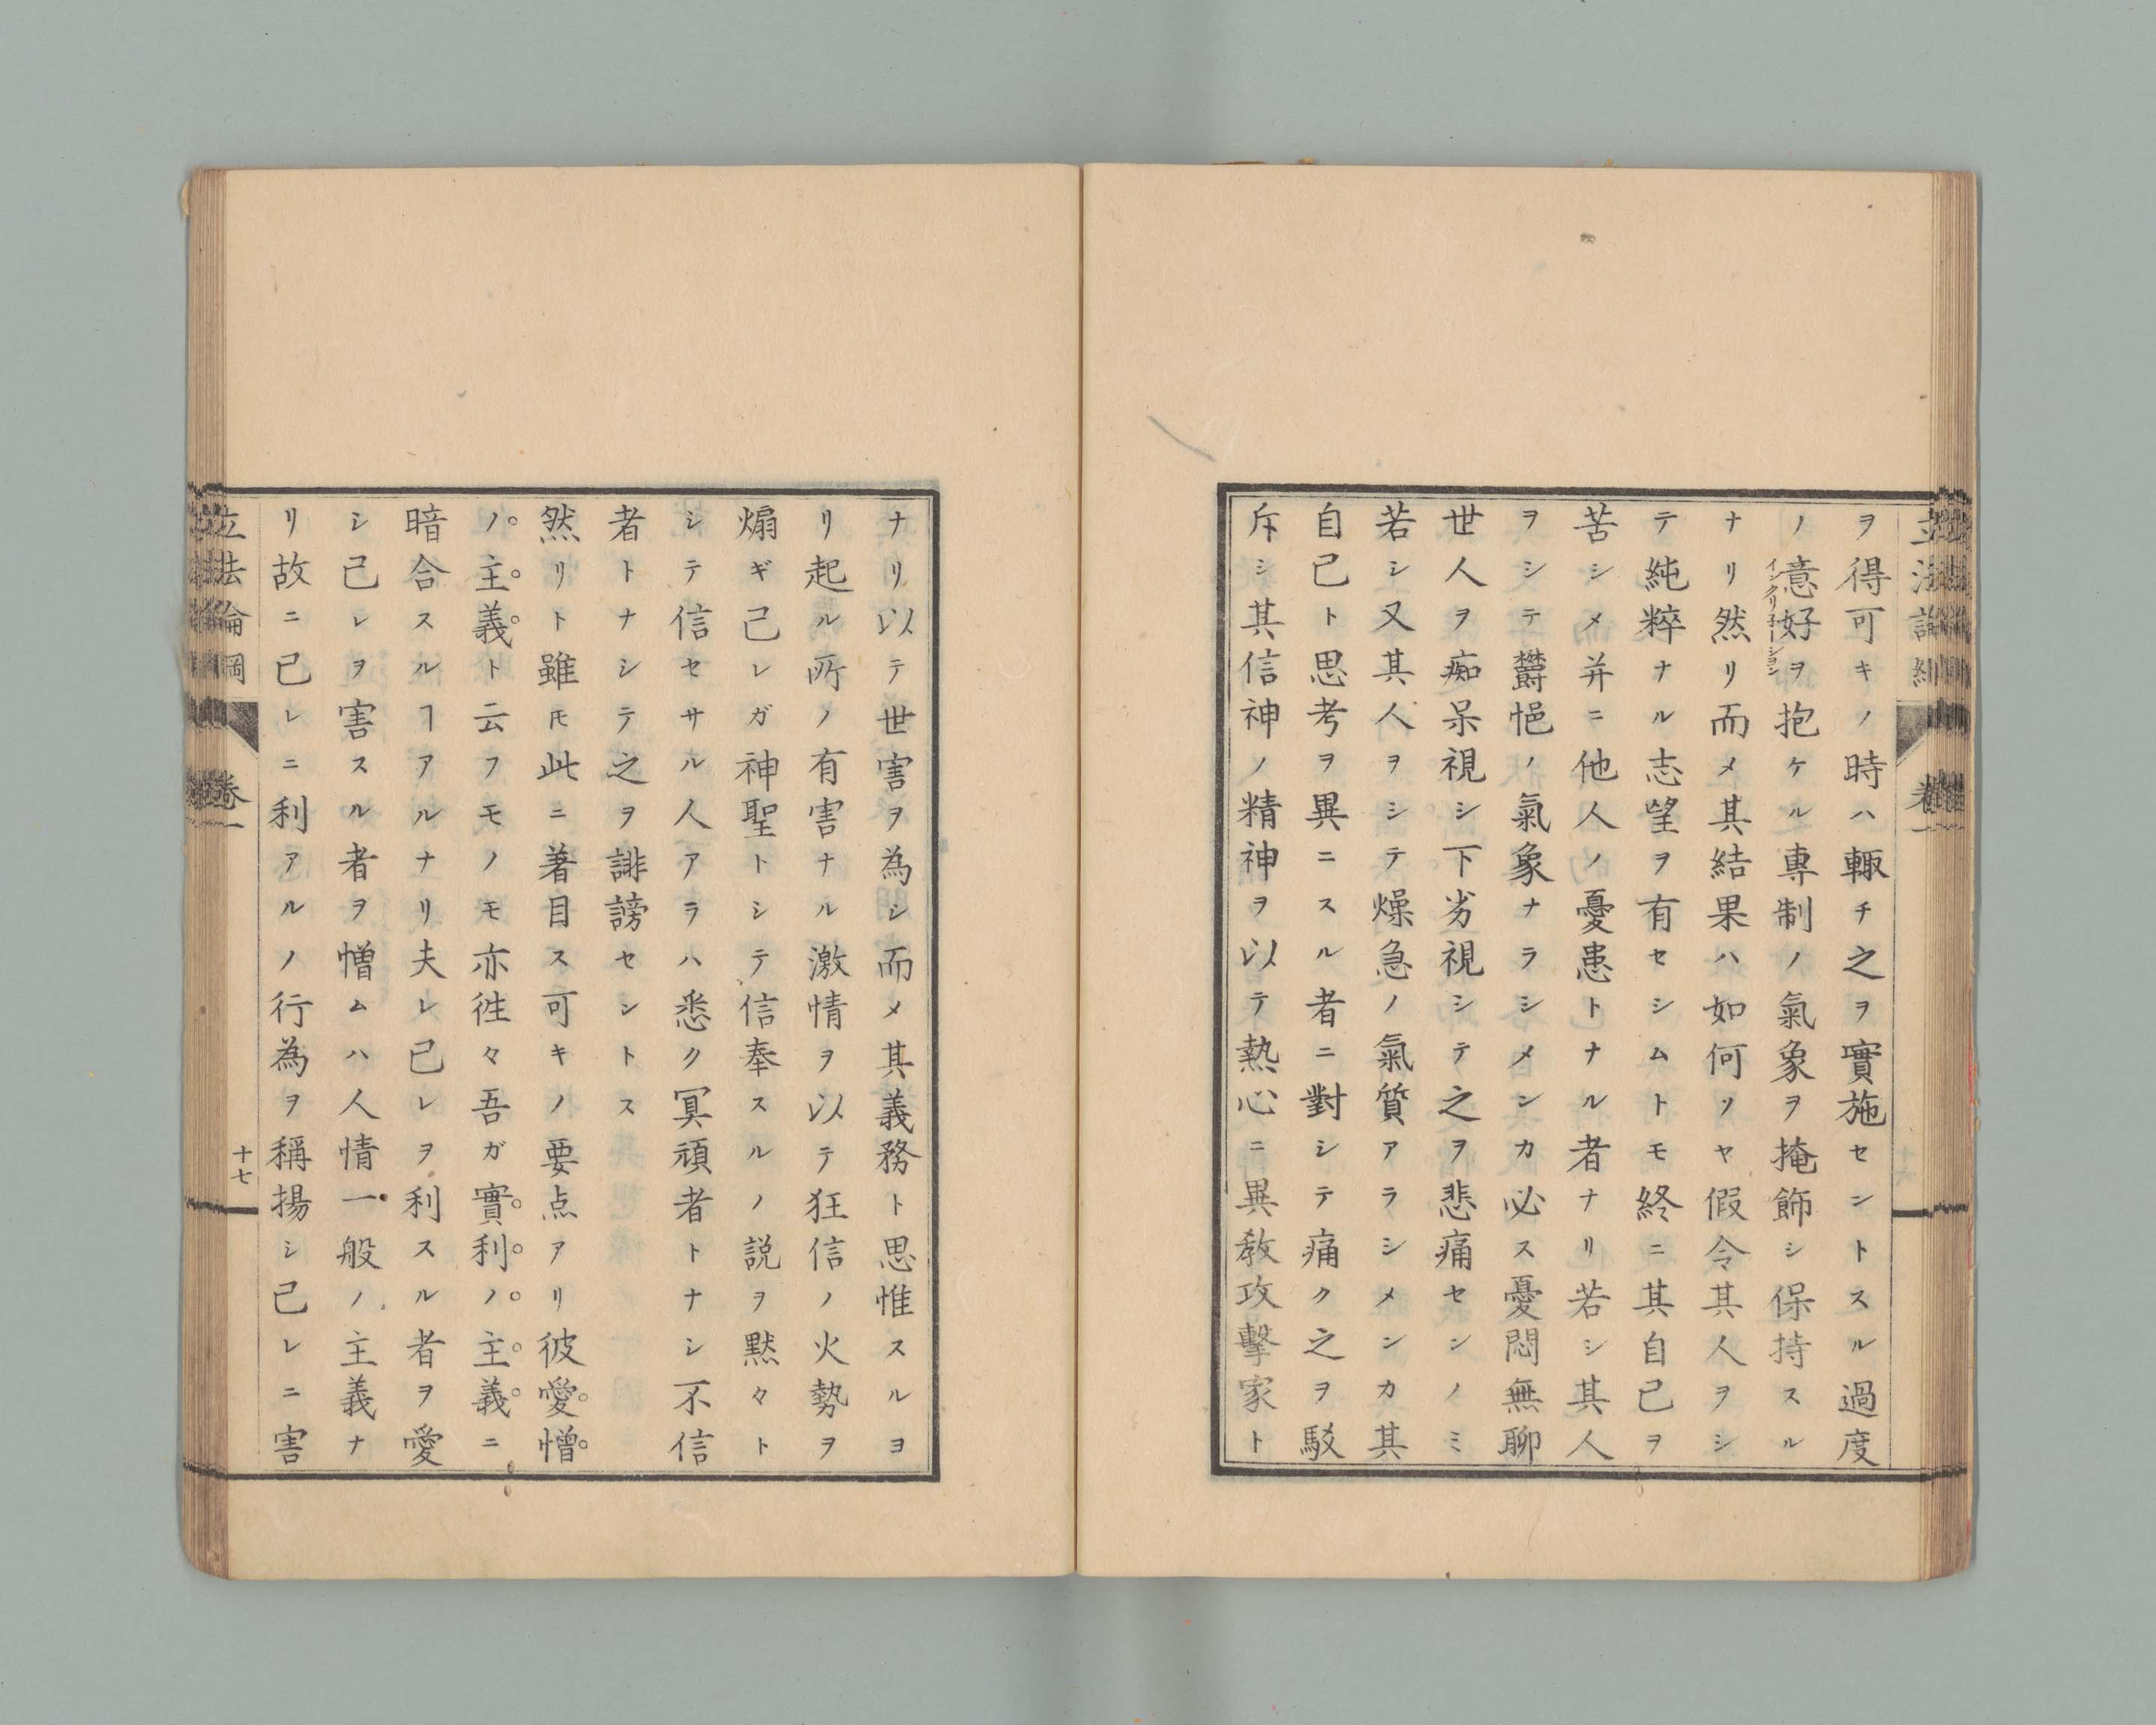 ヲ得可キノ時ハ輙チ之ヲ實施セントスル過度
ノ意好ヲ抱ケル專制ノ氣象ヲ掩飾シ保持スル
インクリネーション
ナリ然リ而メ其結果ハ如何ソヤ假令其人ヲシ
テ純粹ナル志望ヲ有セシムトモ終ニ其自己ヲ
苦シメ并ニ他人ノ憂患トナル者ナリ若シ其人
ヲシテ欝悒ノ氣象ナラシメンカ必ス憂悶無聊
世人ヲ痴呆視シ下劣視シテ之ヲ悲痛センノミ
若シ又其人ヲシテ燥急ノ氣質アラシメンカ其
自己ト思考ヲ異ニスル者ニ對シテ痛ク之ヲ駁
斥シ其信神ノ精神ヲ以テ熱心ニ異教攻擊家ト
ナリ以テ世害ヲ為シ而メ其義務ト思惟スルヨ
リ起ル所ノ有害ナル激情ヲ以テ狂信ノ火勢ヲ
煽ギ己レガ神聖トシテ信奉スルノ説ヲ黙々ト
シテ信セサル人アラハ悉ク冥頑者トナシ不信
者トナシテ之ヲ誹謗セントス
然リト雖𪜈此ニ著目ス可キノ要点アリ彼愛憎
ノ主義ト云フモノモ亦徃々吾ガ實利ノ主義ニ
暗合スルヿアルナリ夫レ己レヲ利スル者ヲ愛
シ己レヲ害スル者ヲ憎ムハ人情一般ノ主義ナ
リ故ニ己レニ利アルノ行為ヲ稱揚シ己レニ害
立法論綱
卷一
十七